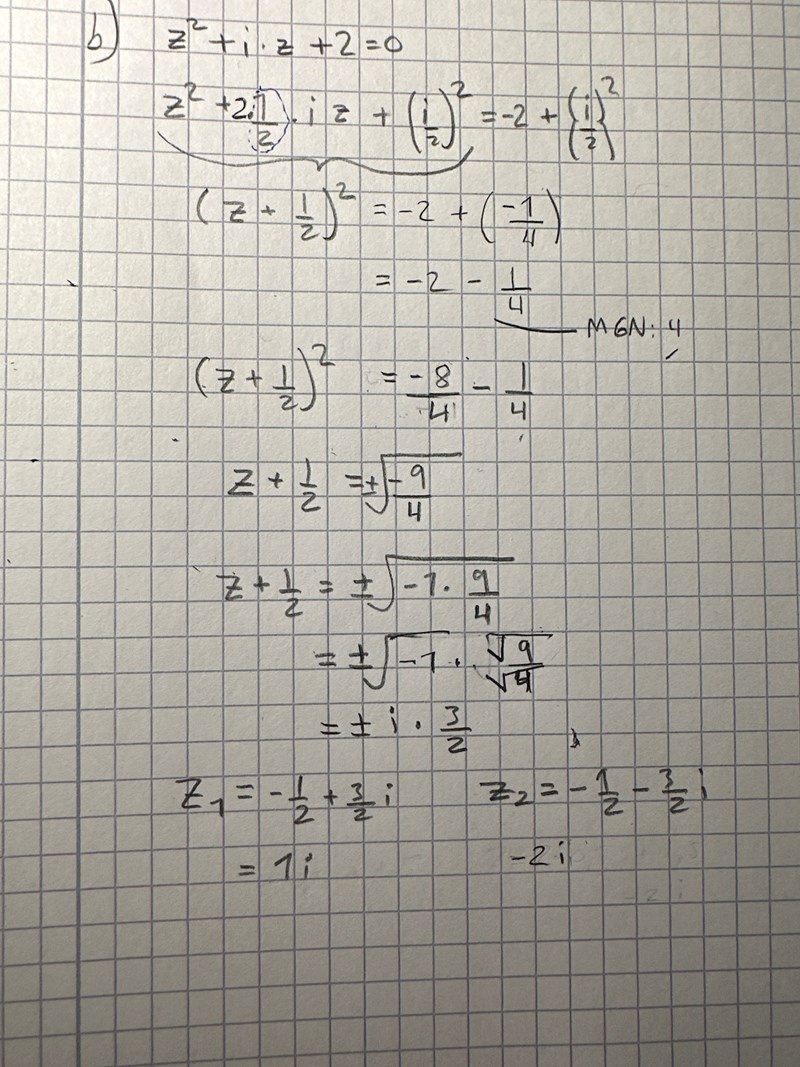 b) z² + i · z + 2 = 0
z² + 2·1/2 · i z + (i/2)² = -2 + (i/2)²
(z + 1/2)² = -2 + (-1/4)
= -2 - 1/4
MGN: 4
(z + 1/2)² = -8/4 - 1/4
z + 1/2 = ±√(-9/4)
z + 1/2 = ±√(-1 · 9/4)
= ±√-1 · √9/√4
= ± i · 3/2
z₁ = -1/2 + 3/2 i z₂ = -1/2 - 3/2 i
= 1i -2i